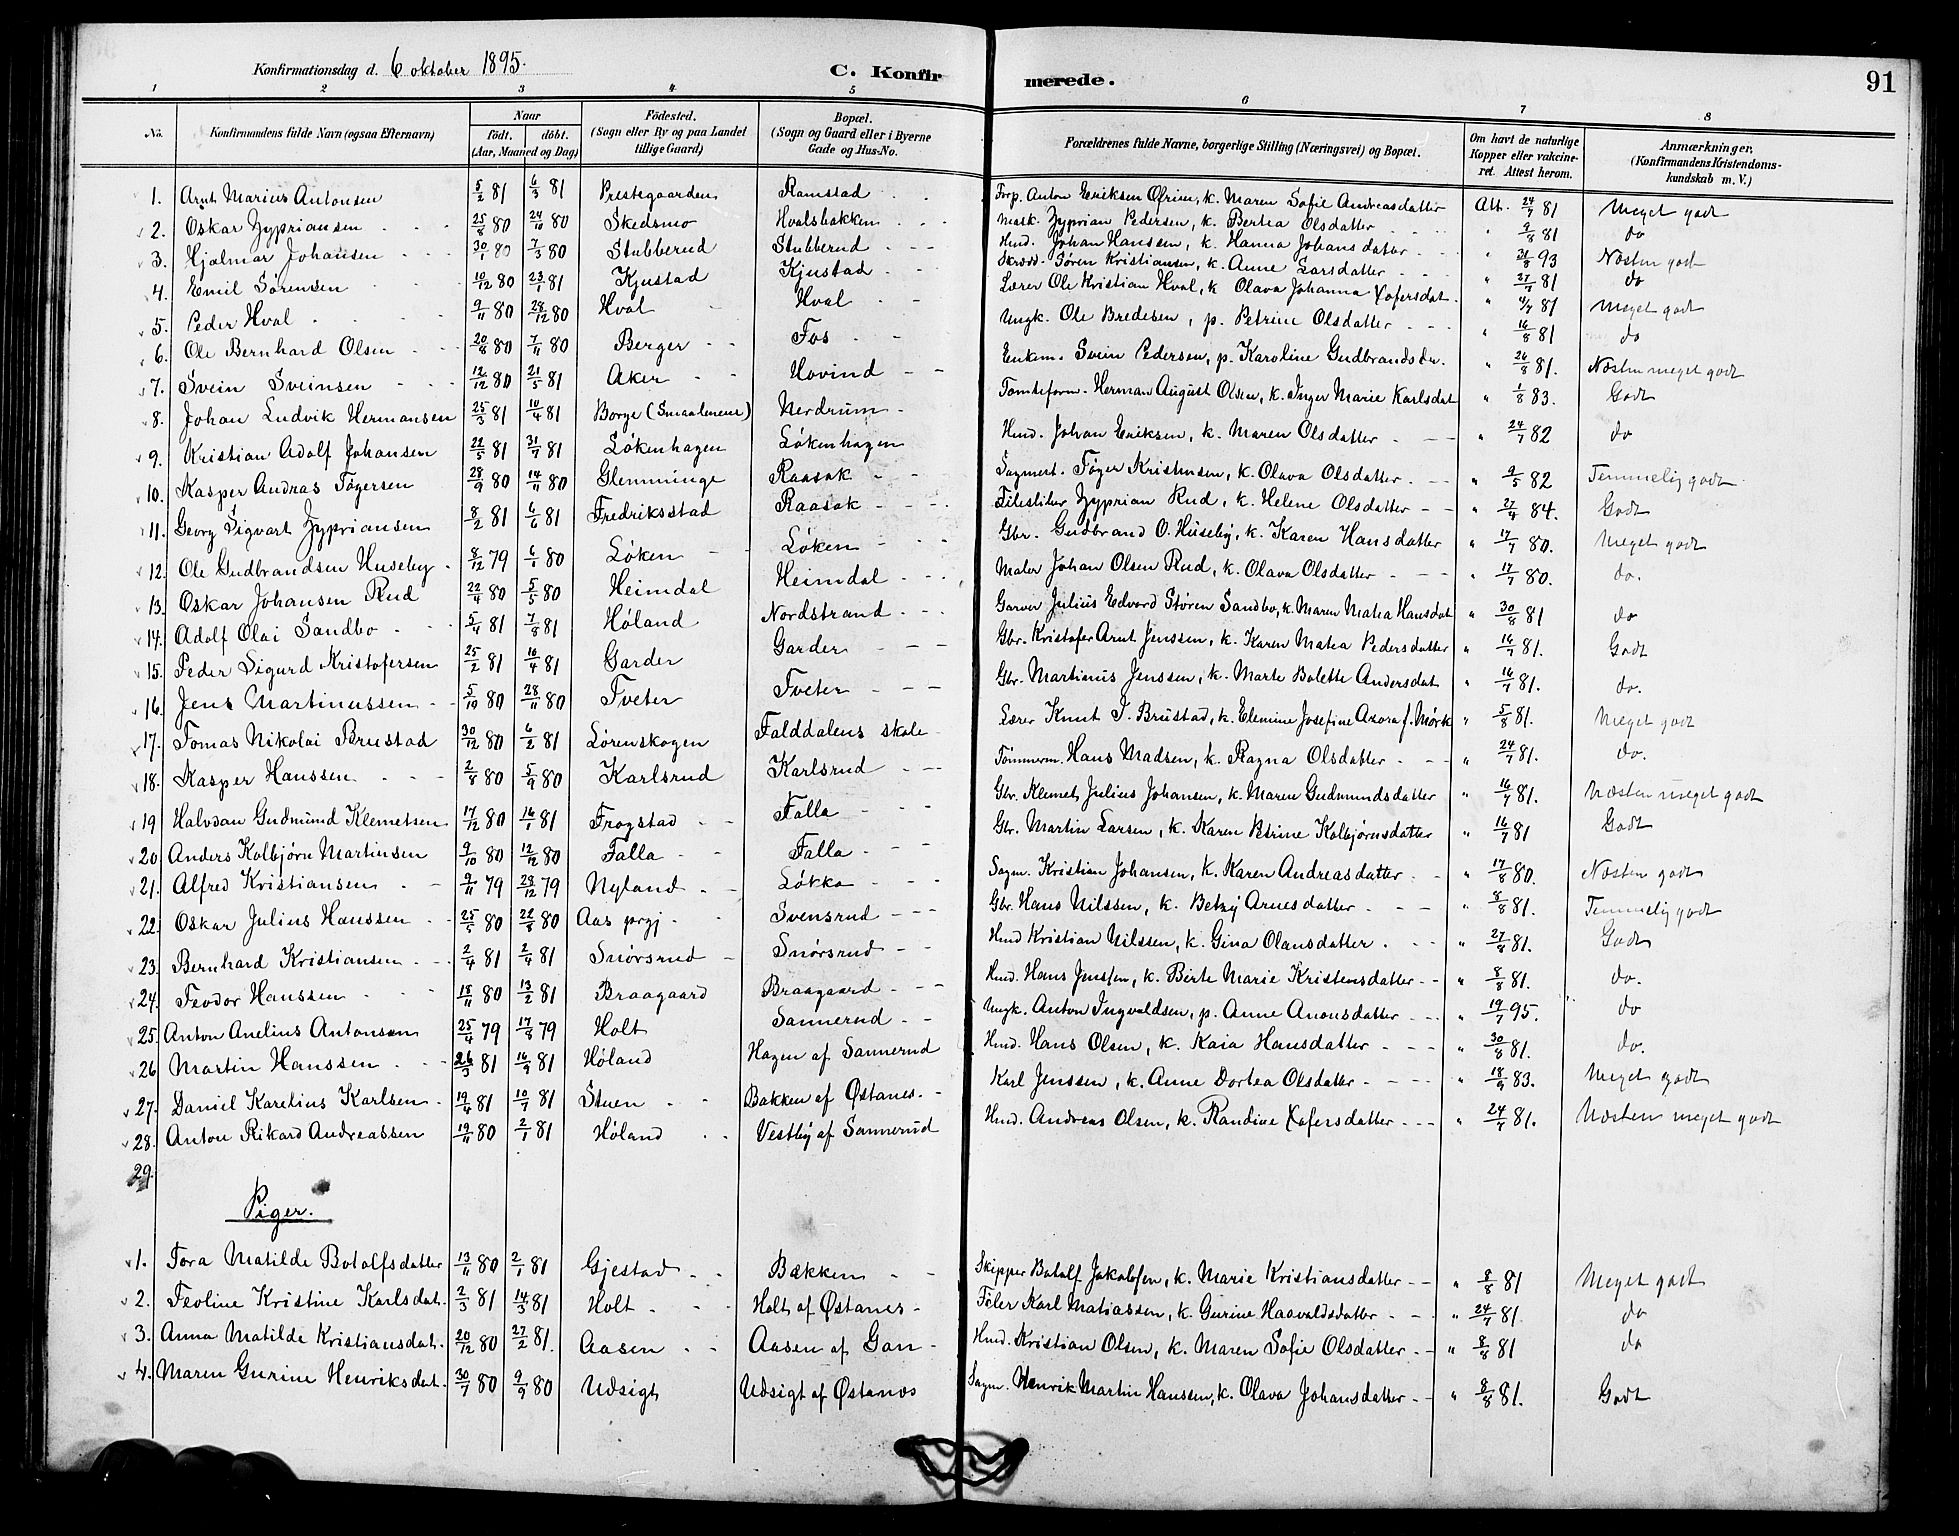 Konfirmationsdag d. 6 oktober 1895.
C. Konfirmerede.
91
1 2 3 4 5 6 7 8
No. Konfirmandens fulde Navn (ogsaa Efternavn) Naar födt. döbt. (Aar, Maaned og Dag) Födested. (Sogn eller By og paa Landet tillige Gaard) Bopæl. (Sogn og Gaard eller i Byerne Gade og Hus-No. Forældrenes fulde Navne, borgerlige Stilling (Næringsvei) og Bopæl. Om havt de naturlige Kopper eller vakcineret. Attest herom. Anmærkninger. (Konfirmandens Kristendomskundskab m. V.)
1. Arnt Marius Antonsen 5/2 81 6/3 81 Prestegaarden Ramstad Forp. Anton Eriksen Øfrim, k. Maren Sofie Andreasdatter Att. 24/7 81 Meget godt
2. Oskar Zypriansen 25/8 80 24/10 80 Skedsmo Hvalsbakken Mask. Zyprian Pedersen, k. Bertea Olsdatter " 9/8 81 do
3. Hjalmar Johansen 30/1 80 7/3 80 Stubberud Stubberud Hmd. Johan Hanssen, k. Hanna Johansdatter " 31/8 93 Næsten godt
4. Emil Sørensen 10/12 80 23/1 81 Kjustad Kjustad Skræd. Søren Kristiansen, k. Anne Larsdatter " 27/7 81 do
5. Peder Hval 9/11 80 28/12 80 Hval Hval Lærer Ole Kristian Hval, k Olava Johanna Xofersdat. " 4/7 81 Meget godt
6. Ole Bernhard Olsen 20/8 80 7/11 80 Berger Fos Ungk. Ole Bredesen, p. Petrine Olsdatter " 16/8 81 do
7. Svein Sveinsen 12/12 80 21/5 81 Aker Hovind Enkem. Svein Pedersen, p. Karoline Gudbrandsdr. " 26/8 81. Næsten meget godt
8. Johan Ludvik Hermansen 25/3 81 10/4 81 Borge (Smaalenene) Nerdrum Tomteform. Herman August Olsen, k. Inger Marie Karlsdat " 1/8 83. Godt
9. Kristian Adolf Johansen 22/5 81 31/7 81 Løkenhagen Løkenhagen Hmd. Johan Eriksen, k. Maren Olsdatter " 24/7 82 do
10. Kasper Andras Tøgersen 28/9 80 14/11 80 Glemminge Raasok Sagmest. Tøger Kristensen, k. Olava Olsdatter " 9/5 82 Temmelig godt
11. Georg Sigvart Zypriansen 8/2 81 6/6 81 Fredriksstad Raasok Zyprian Rud, k. Helene Olsdatter " 27/4 84. Godt
12. Ole Gudbrandsen Huseby 8/12 79 6/1 80 Løken Løken Gbr. Gudbrand O. Huseby, k. Karen Hansdatter " 17/7 80. Meget godt
13. Oskar Johansen Rud 22/4 80 5/5 80 Heimdal Heimdal Maler Johan Olsen Rud, k. Olava Olsdatter " 17/7 80. do.
14. Adolf Olai Sandbo 5/4 81 7/8 81 Høland Nordstrand Garver Julius Edvard Støren Sandbo, k. Maren Matea Hansdat " 30/8 81 do
15. Peder Sigurd Kristofersen 25/2 81 16/4 81 Garder Garder Gbr. Kristofer Arnt Jenssen, k. Karen Matea Pedersdatter " 16/7 81. Godt
16. Jens Martinussen 5/10 80 28/11 80 Tveter Tveter Gbr. Martinus Jenssen, k. Marte Bolette Andersdat " 16/7 81. do.
17. Tomas Nikolai Brustad 30/12 80 6/2 81 Lørenskogen Falddalens skole Lærer Knut T. Brustad, k. Elemine Josefine Axora f. Mørk " 5/8 81. Meget godt
18. Kasper Hanssen 2/8 80 5/9 80 Karlsrud Karlsrud Tømmerm. Hans Madsen, k. Ragna Olsdatter " 24/7 81. do.
19 Halvdan Gudmund Klemetsen 17/12 80 16/1 81 Frogstad Falla Gbr. Klemet Julius Johansen, k. Maren Gudmundsdatter " 16/7 81. Næsten meget godt
20 Anders Kolbjørn Martinsen 9/10 80 12/12 80 Falla Falla Gbr. Martin Larsen, k. Karen Petrine Kolbjørnsdatter " 16/7 81 Godt
21. Alfred Kristiansen 9/11 79 28/12 79 Nyland Løkka Sagm. Kristian Johansen, k. Karen Andreasdatter " 17/8 80. Næsten godt
22. Oskar Julius Hanssen 25/5 80 22/8 80 Aas prgj Svensrud Gbr. Hans Nilssen, k. Betzy Arnesdatter " 8/8 81. Temmelig godt
23. Bernhard Kristiansen 2/4 81 2/4 81 Snørsrud Snørsrud Hmd Kristian Nilssen, k. Gina Olausdatter " 27/8 81. Godt
24. Teodor Hanssen 18/11 80 13/2 81 Braagaard Braagaard Hmd. Hans Jenssen, k. Birte Marie Kristensdatter " 8/8 81. do.
25. Anton Anelius Antonsen 25/4 79 17/8 79 Holt Sannerud Ungk. Anton Ingvaldsen, p. Anne Anonsdatter " 19/7 95. do
26 Martin Hanssen 26/3 81 16/9 81 Høland Hagen af Sannerud Hmd. Hans Olsen, k. Kaia Hansdatter " 30/8 81. do.
27. Daniel Karelius Karlsen 19/4 81 10/7 81 Stuen Bakken af Østanes. Karl Jenssen, k. Anne Dortea Olsdatter " 18/9 83. Meget godt
28. Anton Rikard Andreassen 19/11 80 2/1 81 Høland Vestby af Sannerud Hmd. Andreas Olsen, k. Randine Xofersdatter " 24/7 81. Næsten meget godt
29.
Piger.
1. Tora Matilde Botolfsdatter 13/11 80 2/1 81 Gjestad Bækken Skipper Botolf Jakobsen, k. Marie Kristiansdatter " 8/8 81 Meget godt
2. Teoline Kristine Karlsdat. 2/3 81 14/3 81 Holt Holt af Østanes Føler Karl Matiassen, k. Gurine Haavaldsdatter " 24/7 81. do
3. Anna Matilde Kristiansdat. 20/12 80 27/2 81. Aasen Aasen af Gan Hmd. Kristian Olsen, k. Maren Sofie Olsdatter " 8/8 81 do
4. Maren Gurine Henriksdat. 30/7 80 9/9 80 Udsigt Udsigt af Østanes Sagm. Henrik Martin Hansen, k. Olava Johansdatter " 8/8 81. Godt